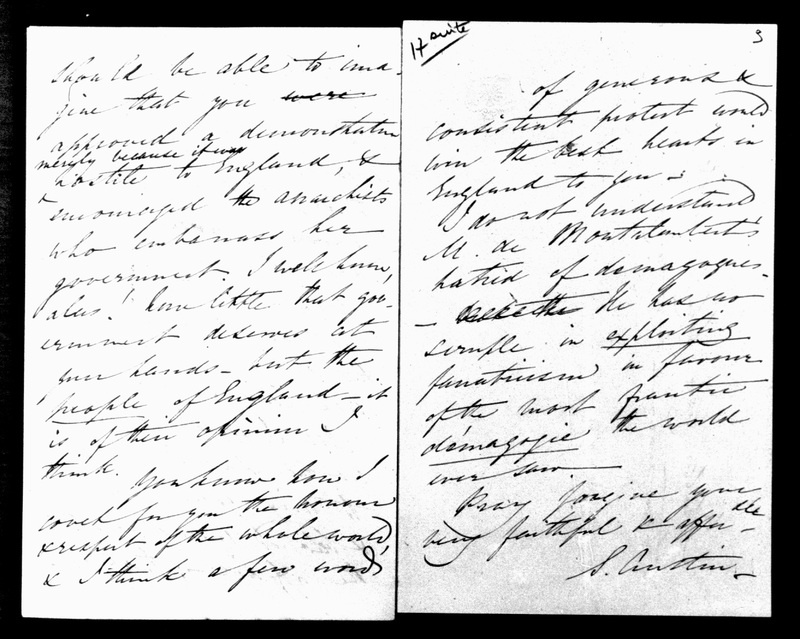 should be able to ima-
gine that you were
approved a demonstration
merely because it was
hostile to England, &
encouraged the anarchists
who embarrass her
government. I well know,
alas! how little that gov-
ernment deserves at
your hands - but the
people of England - it
is of their opinion I
think.
You know how I
covet for you the honour
& respect of the whole world
& I think a few words
17 suite
3
of generous &
consistent protest would
win the best hearts in
England to you -
I do not understand
M. de Montalembert's
hatred of demagogues.
- He has no
scruple in exploiting
fanaticism in favour
of the most frantic
démagogie the world
ever saw -
Pray forgive your
very faithful & affec-
ate
S. Austin -